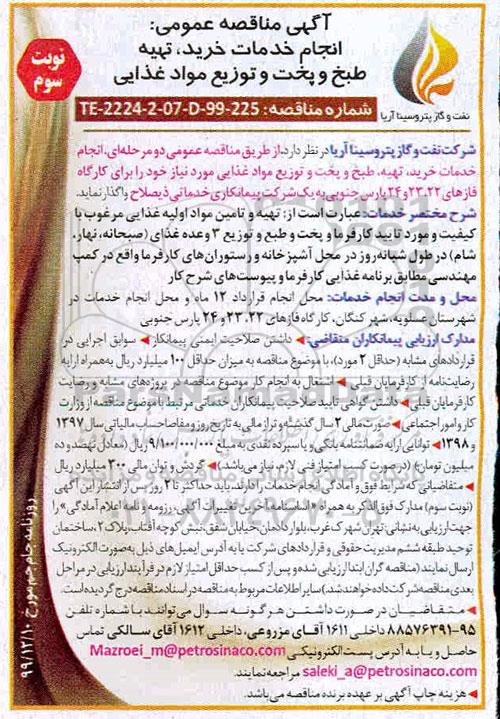 آگهی مناقصه عمومی:
انجام خدمات خرید، تهیه
طبخ و پخت و توزیع مواد غذایی
نوبت
سوم
نفت و گاز پتروسینا آریا
شماره مناقصه: TE-2224-2-07-D-99-225
شرکت نفت و گاز پتروسینا آریا در نظر دارد، از طریق مناقصه عمومی دو مرحله‌ای، انجام
خدمات خرید، تهیه، طبخ و پخت و توزیع مواد غذایی مورد نیاز خود را برای کارگاه
فازهای ۲۳،۲۲ و ۲۴ پارس جنوبی به یک شرکت پیمانکاری خدماتی ذیصلاح واگذار نماید.
شرح مختصر خدمات: عبارت است از: تهیه و تامین مواد اولیه غذایی مرغوب با
کیفیت و مورد تایید کارفرما و پخت و طبخ و توزیع ۳ وعده غذای (صبحانه، نهار،
شام) در طول شبانه‌روز در محل آشپزخانه و رستوران‌های کارفرما واقع در کمپ
مهندسی مطابق برنامه غذایی کارفرما و پیوست‌های شرح کار
محل و مدت انجام خدمات: محل انجام قرارداد ۱۲ ماه و محل انجام خدمات در
شهرستان عسلویه، شهر کنگان، کارگاه فازهای ۲۳،۲۲ و ۲۴ پارس جنوبی
مدارک ارزیابی پیمانکاران متقاضی: داشتن صلاحیت ایمنی پیمانکار سوابق اجرایی در
قراردادهای مشابه (حداقل ۲ مورد)، با موضوع مناقصه به میزان حداقل ۱۰۰ میلیارد ریال به همراه ارایه
رضایت‌نامه از کارفرمایان قبلی اشتغال به انجام کار موضوع مناقصه در پروژه‌های مشابه و رضایت
کارفرمایان قبلی داشتن گواهی تایید صلاحیت پیمانکاران خدماتی مرتبط با موضوع مناقصه از وزارت
کار و امور اجتماعی صورت مالی ۲ سال گذشته و تراز مالی به تاریخ روز و مفاصاحساب مالیاتی سال ۱۳۹۷
و ۱۳۹۸ توانایی ارایه ضمانتنامه بانکی و یا سپرده نقدی به مبلغ ۹/۱۰۰/۰۰۰/۰۰۰ ریال (معادل نهصد و ده
میلیون تومان) (در صورت کسب امتیاز فنی لازم، نیاز می‌باشد) گردش و توان مالی ۳۰۰ میلیارد ریال
متقاضیانی که شرایط فوق و آمادگی انجام خدمات را دارند، باید حداکثر تا ۲ روز پس از انتشار این آگهی
(نوبت سوم) مدارک فوق الذکر به همراه «اساسنامه، آخرین تغییرات آگهی، رزومه و نامه اعلام آمادگی» را
جهت ارزیابی به نشانی: تهران، شهرک غرب، بلوار دادمان، خیابان شفق، نبش کوچه آفتاب، پلاک ۲، ساختمان
توحید طبقه ششم مدیریت حقوقی و قراردادهای شرکت یا به آدرس ایمیل‌های ذیل به‌صورت الکترونیک
ارسال نمایند (مناقصه گران ابتدا ارزیابی شده و پس از کسب حداقل امتیاز لازم در فرآیند ارزیابی در مراحل
بعدی مناقصه شرکت داده خواهند شد.) سایر اطلاعات مربوط به مناقصه در اسناد مناقصه درج گردیده است.
متقاضیان در صورت داشتن هرگونه سوال می‌توانند با شماره تلفن
۸۸۵۷۶۳۹۱-۹۵ داخلی ۱۶۱۱ آقای مزروعی، داخلی ۱۶۱۲ آقای سالکی تماس
حاصل و یا به آدرس پست الکترونیکی Mazroei_m@petrosinaco.com
saleki_a@petrosinaco.com مراجعه نمایند.
هزینه چاپ آگهی بر عهده برنده مناقصه می‌باشد.
روزنامه جام جم مورخ ۹۹/۱۲/۱۰